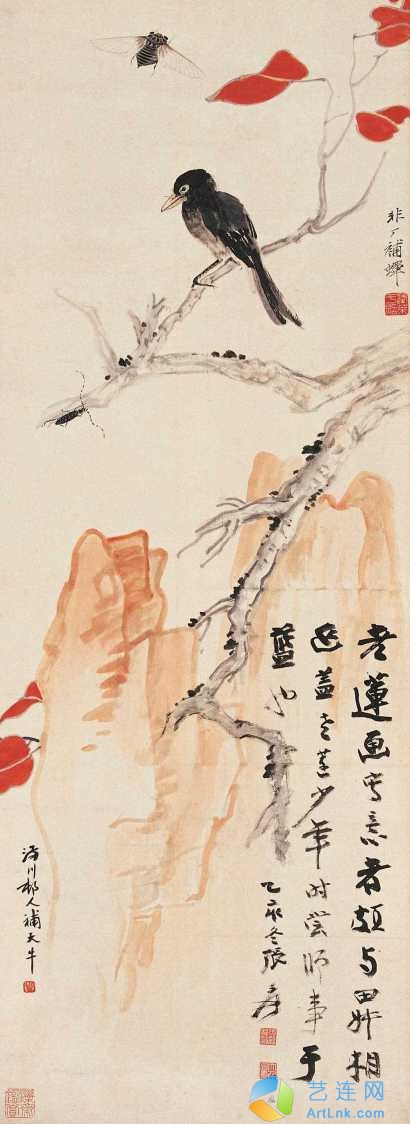 非厂補蟬
老蓮画写意者頗与田叔相
近蓋老蓮少年时嘗师事于
藍也
乙亥冬張爰
川
人補天牛
艺连网
ArtLnk.com